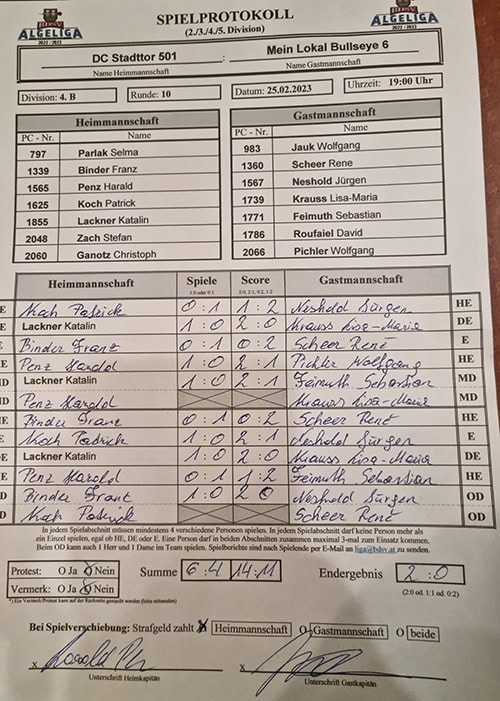 BDSV
ALGELIGA
2022 / 2023
SPIELPROTOKOLL
(2./3./4./5. Division)
BDSV
ALGELIGA
2022 / 2023
DC Stadttor 501 : Mein Lokal Bullseye 6
Name Heimmannschaft Name Gastmannschaft
Division: 4. B Runde: 10 Datum: 25.02.2023 Uhrzeit: 19:00 Uhr
Heimmannschaft Gastmannschaft
PC - Nr. Name PC - Nr. Name
797 Parlak Selma 983 Jauk Wolfgang
1339 Binder Franz 1360 Scheer Rene
1565 Penz Harald 1567 Neshold Jürgen
1625 Koch Patrick 1739 Krauss Lisa-Maria
1855 Lackner Katalin 1771 Feimuth Sebastian
2048 Zach Stefan 1786 Roufaiel David
2060 Ganotz Christoph 2066 Pichler Wolfgang
Heimmannschaft Spiele Score Gastmannschaft
1:0 oder 0:1 2:0, 2:1, 0:2, 1:2
E Koch Patrick 0:1 1:2 Neshold Jürgen HE
E Lackner Katalin 1:0 2:0 Krauss Lisa-Maria DE
Binder Franz 0:1 0:2 Scheer René E
E Penz Harald 1:0 2:1 Pichler Wolfgang HE
MD Lackner Katalin 1:0 2:1 Feimuth Sebastian MD
MD Penz Harald Krauss Lisa-Maria MD
HE Binder Franz 0:1 0:2 Scheer René HE
E Koch Patrick 1:0 2:1 Neshold Jürgen E
DE Lackner Katalin 1:0 2:0 Krauss Lisa-Maria DE
E Penz Harald 0:1 1:2 Feimuth Sebastian HE
D Binder Franz 1:0 2:0 Neshold Jürgen OD
D Koch Patrick Scheer René OD
In jedem Spielabschnitt müssen mindestens 4 verschiedene Personen spielen. In jedem Spielabschnitt darf keine Person mehr als
ein Einzel spielen, egal ob HE, DE oder E. Eine Person darf in beiden Abschnitten zusammen maximal 3-mal zum Einsatz kommen.
Beim OD kann auch 1 Herr und 1 Dame im Team spielen. Spielberichte sind nach Spielende per E-Mail an liga@bdsv.at zu senden.
Protest: O Ja O Nein Summe 6:4 14:11 Endergebnis 2:0
Vermerk: O Ja O Nein (2:0 od. 1:1 od. 0:2)
*) Ein Vermerk/Protest kann auf der Rückseite gemacht werden (bitte mitsenden)
Bei Spielverschiebung: Strafgeld zahlt X Heimmannschaft O Gastmannschaft O beide
x x
Unterschrift Heimkapitän Unterschrift Gastkapitän